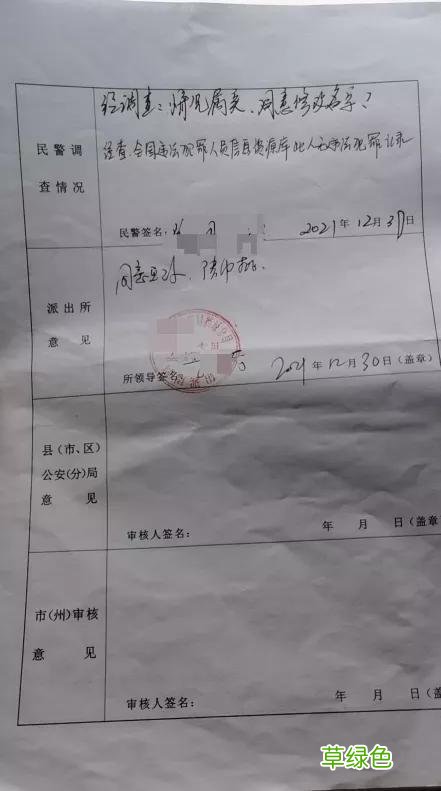 经调查：情况属实，同意修改名字。
民警调
查情况
经查，全国违法犯罪人员信息资源库此人无违法犯罪记录
民警签名：
2021年12月30日
派出所
意见
同意
所领导签名：
2021年12月30日（盖章）
县（市、区）
公安（分）局
意见
审核人签名：
年 月 日（盖章
市（州）审核
意见
审核人签名：
年 月 日（盖
草绿色